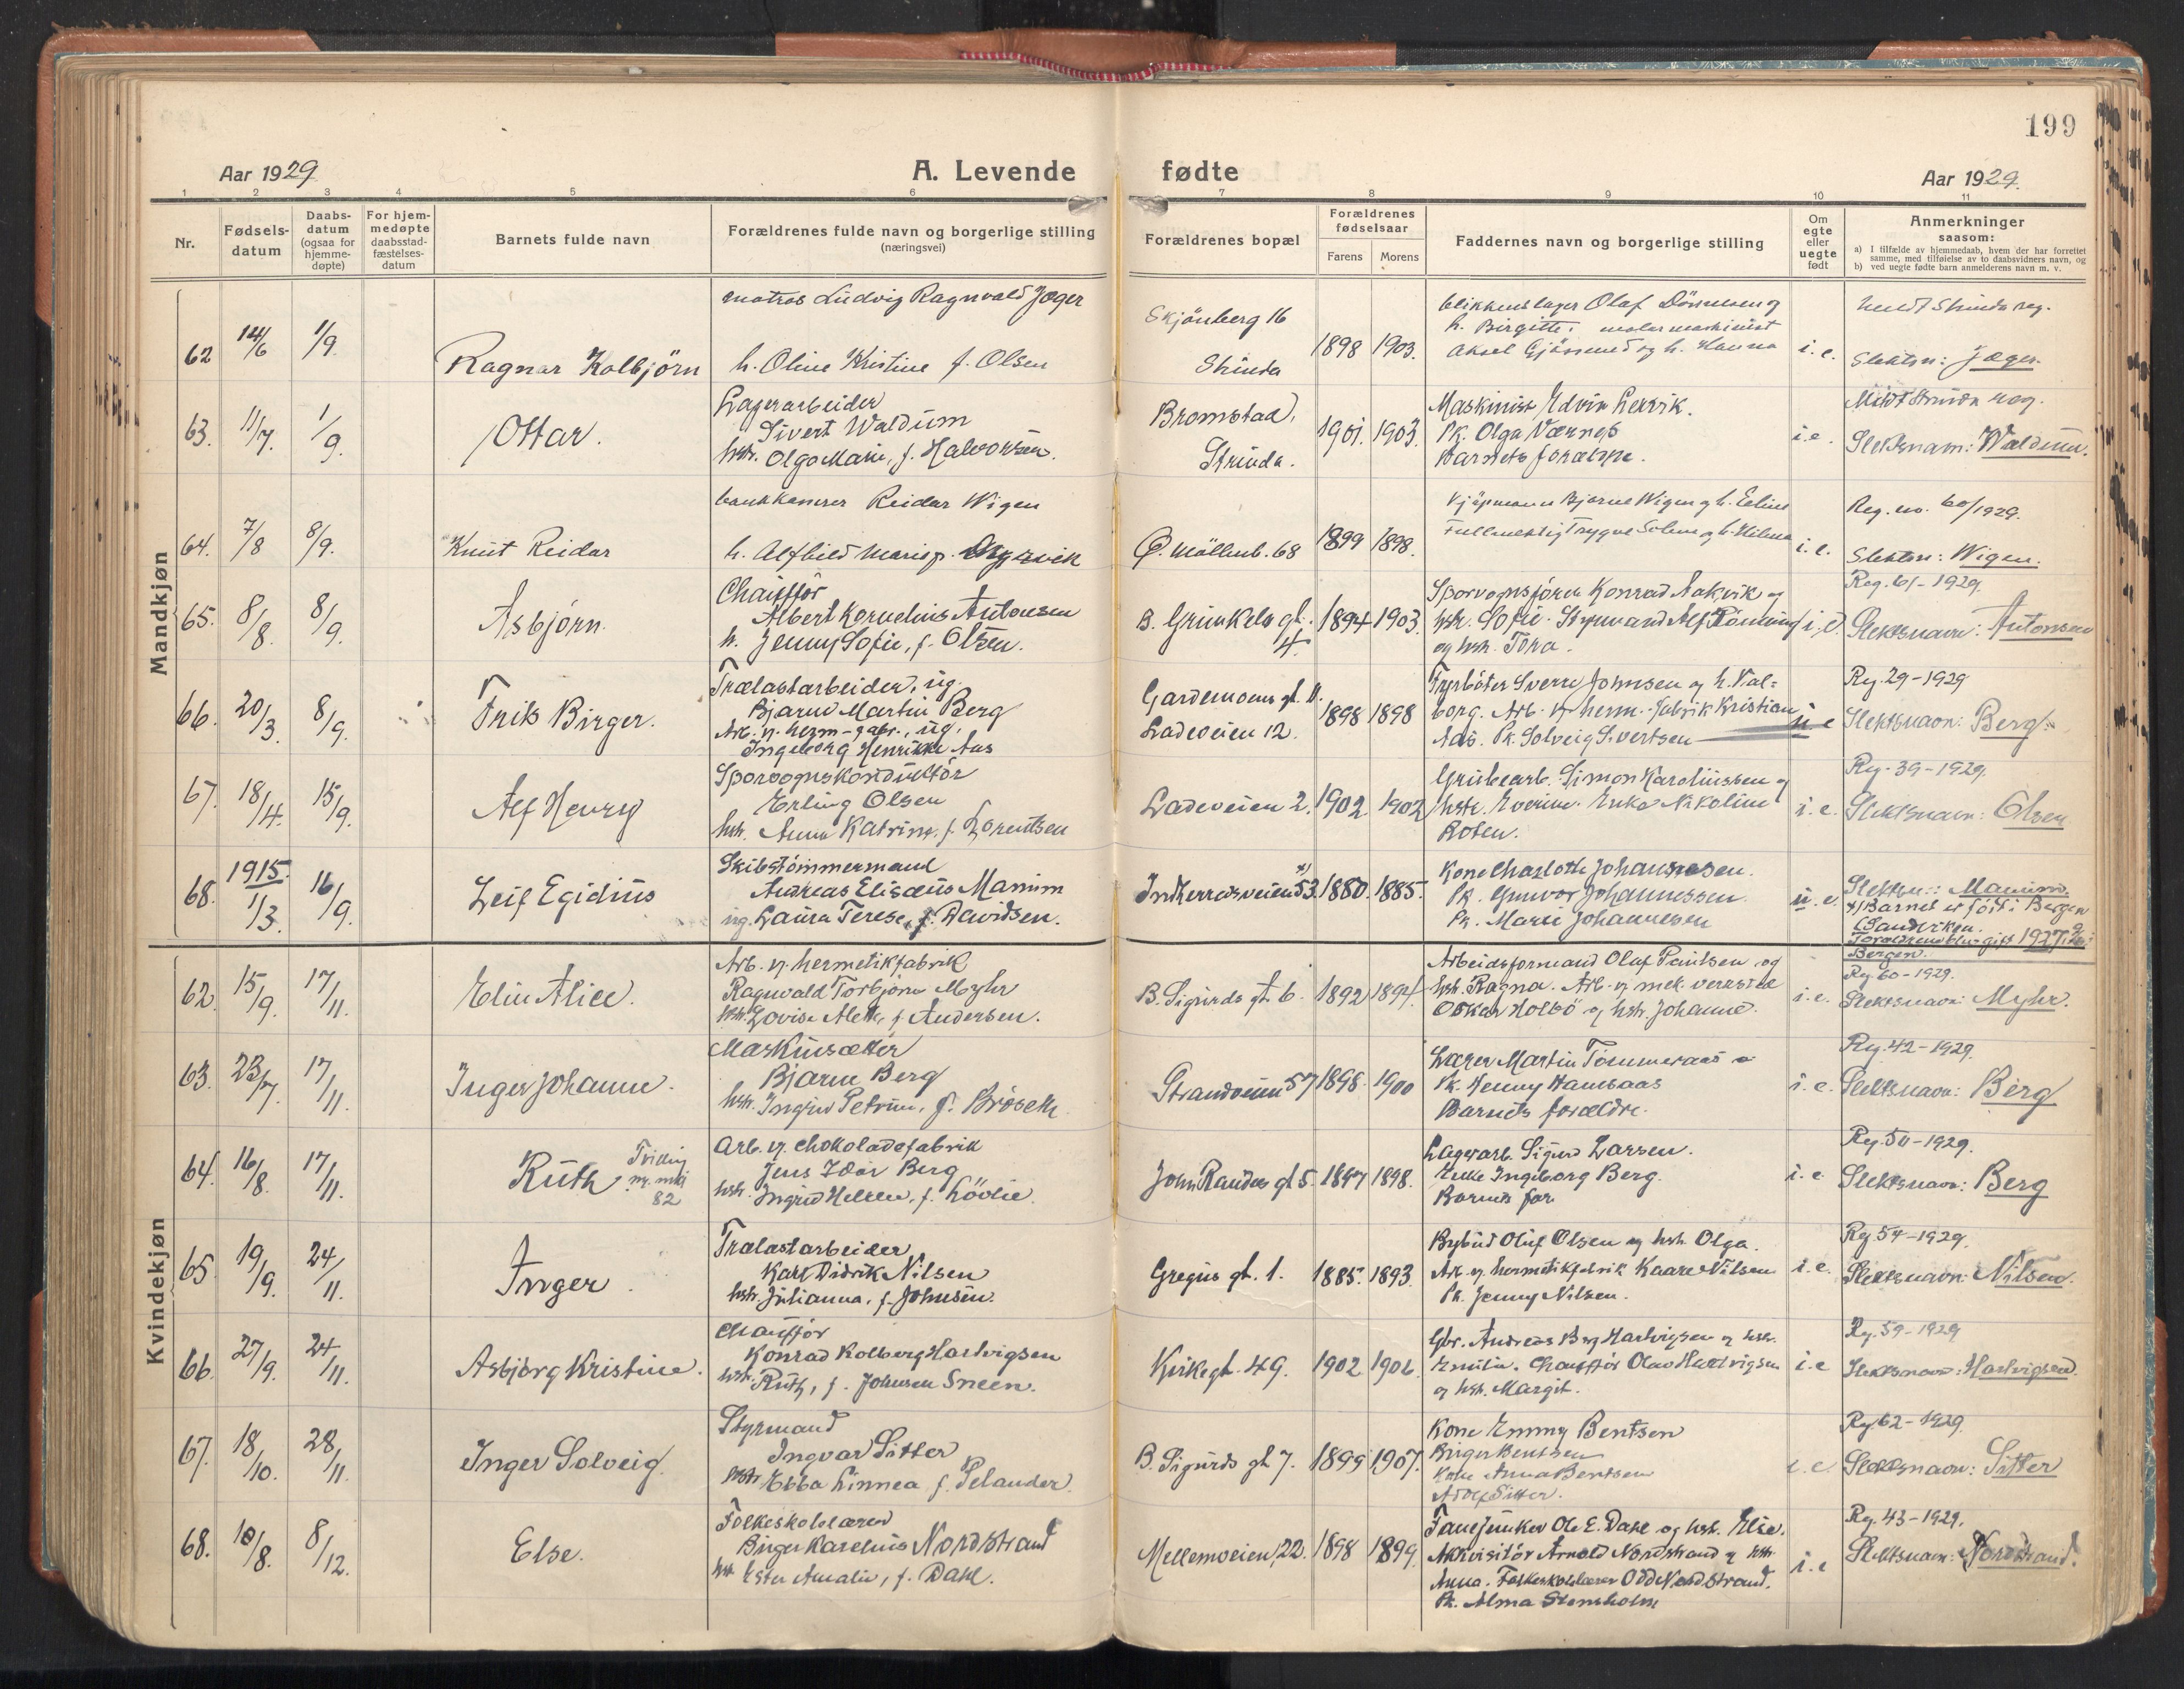 199
Aar 1929
A. Levende fødte
Aar 1929.
1 2 3 4 5 6 7 8 9 10 11
Nr.
Fødsels-
datum
Daabs-
datum
(ogsaa for
hjemme-
døpte)
For hjem-
medøpte
daabsstad-
fæstelses-
datum
Barnets fulde navn
Forældrenes fulde navn og borgerlige stilling
(næringsvei)
Forældrenes bopæl
Forældrenes
fødselsaar
Farens Morens
Faddernes navn og borgerlige stilling
Om
egte
eller
uegte
født
Anmerkninger
saasom:
a) I tilfælde av hjemmedaab, hvem der har forrettet
samme, med tilføielse av to daabsvidners navn, og
b) ved uegte fødte barn anmelderens navn m. v.
Mandkjøn
62 14/6 1/9.
Ragnar Kolbjörn
matros Ludvig Ragnvald Jæger
h. Oline Kristine f. Olsen
Skjönberg 16
Strinda
1898 1903.
blikkenslager Olaf
h. Birgitte.
Aksel og h. Hanna
i. e.
Meldt Strinda reg.
Slektsn: Jæger.
63. 11/7. 1/9.
Ottar.
Lagerarbeider
Sivert Waldum
hstr. Olga Marie, f. Halvorsen.
Bromstad,
Strinda.
1901. 1903.
Maskinist Edvin
Pk. Olga Værnes
Barnets forældre.
i. e.
Meldt Strinda reg.
Slektsnam: Waldum.
64. 7/8 8/9.
Knut Reidar
bankkaserer Reidar Wigen
h. Alfhild Marie f.
Ø. Möllenb. 68
1899 1898.
Kjöpmann Bjarne Wigen og h. Eline
Fullmektig Trygve Solem og h. Hilma
i. e.
Reg. no. 60/1929.
Slektsn: Wigen.
65. 8/8. 8/9.
Asbjørn.
Chaufför
Albert Kornelius Antonsen
h. Jenny Sofie, f. Olsen.
B. Grinkels gt.
4.
1894 1903.
Sporvognsfören Konrad Aakvik og
hstr. Sofie. Styrmand Alf Rönning
og hstr. Tora.
i. e.
Reg. 61-1929.
Slektsnavn: Antonsen
66. 20/3. 8/9.
Friis Birger.
Trælastarbeider, ug.
Bjarne Martin Berg
Arb. v. herm-fabr., ug.
Ingeborg Henrikke Aas
Gardemoens gt. 11.
Ladeveien 12.
1898 1898
Fyrböter Sverre Johnsen og h. Val-
borg. Arb. v. herm.-fabrik Kristian
Aas. Pk. Solveig Sivertsen
u. e
Reg. 29-1929
Slektsnavn: Berg.
67. 18/4. 15/9.
Alf Henry
Sporvognskonduktör
Erling Olsen
hstr. Anna Katrine, f. Lorentsen
Ladeveien 2.
1902. 1902
Grubearb. Simon Karoliussen og
hstr. Everine. Enke Nikoline
Roten.
i. e.
Reg. 39-1929.
Slektsnavn: Olsen
68. 1915. 1/3. 16/9.
Leif Egidius
Skibstömmermand
Andreas Elisæus Manum
ug. Laura Terese, f. Davidsen.
Indherredsveien 53. x)
1880. 1885.
Kone Charlotte Johannesen.
Pk. Gunvor Johannessen.
Pk. Marie Johannesen
u. e.
Slektsn.: Manum.
x) Barnet er fört i Bergen
(Sandviken.
Forældrene blev gift 1927 i
Bergen.
Kvindekjøn
62. 15/9. 17/11.
Elin Alice.
Arb. v. hermetikfabrik
Ragnvald Torbjörn Myhr
hstr. Lovise Aletta, f. Andersen.
B. Sigurds gt. 6.
1892 1894.
Arbeidsformand Olaf Paulsen og
hstr. Ragna. Arb. v. mek. verksted
Oskar Holbö og hstr. Johanne.
i. e.
Rg. 60-1929.
Slektsnavn: Myhr.
63. 23/7. 17/11.
Inger Johanne.
Maskinsætter
Bjarne Berg
hstr. Ingrid Petrine, f. Bröseth
Strandveien 57
1898. 1900
Lærer Martin Tömmeraas
Pk. Henny Hamsaas
Barnets forældre.
i. e.
Reg. 42-1929.
Slektsnavn: Berg
64. 16/8. 17/11.
Ruth
Tvilling
m. mk
82
Arb. v. chokoladefabrik
Jens Idar Berg
hstr. Ingrid Helene, f. Lövlie.
John Randes gt 5.
1897 1898.
Lagerarb. Sigurd Larsen.
Enke Ingeborg Berg.
Barnets far
i. e
Reg. 50-1929.
Slektsnavn: Berg
65. 19/9. 24/11.
Inger.
Trælastarbeider
Karl Didrik Nilsen
hstr. Julianna, f. Johnsen.
Gregus gt. 1.
1885. 1893.
Bybud Oluf Olsen og hstr. Olga.
Arb. v. hermetikfabrik Kaare Nilsen
Pk. Jenny Nilsen.
i. e.
Rg. 54-1929.
Slektsnavn: Nilsen.
66. 27/9. 24/11.
Asbjørg Kristine.
Chaufför
Konrad Kolberg Hartvigsen
hstr. Ruth, f. Johnsen Sneen.
Kirkegt. 49.
1902 1902.
Gbr. Andreas Berg Hartvigsen og hstr.
Emilie. Chaufför Olav Hartvigsen
og hstr. Margit.
i. e
Rg. 59-1929
Slektsnavn: Hartvigsen.
67. 18/10. 28/11.
Inger Solveig.
Styrmand
Ingvar Sitter
hstr. Ebba Linnea f. Pelander.
B. Sigurds gt 7.
1899 1907.
Kone Emmy Bentsen
Birger Bentsen
Kone Anna Bentsen
Adolf Sitter.
i. e.
Rg. 62-1929.
Slektsnavn: Sitter
68. 10/8. 8/12.
Else.
Folkeskolelærer
Birger Karelius Nordstrand
hstr. Ester Amalie, f. Dahl.
Mellemveien, 22.
1898 1899.
Fanejunker Ole E. Dahl og hstr. Else.
Akkvisitör Arnold Nordstrand og hstr.
Anna. Folkeskolelærer Odd Nordstrand.
Pk. Alma Stensholm
i. e
Rg. 43-1929.
Slektsnavn: Nordstrand.